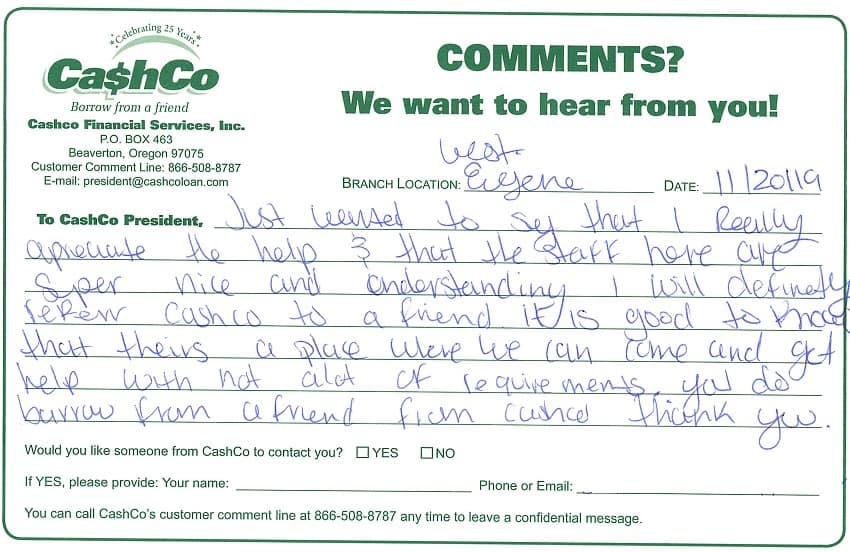 Celebrating 25 Years
Ca$hCo
Borrow from a friend
Cashco Financial Services, Inc.
P.O. BOX 463
Beaverton, Oregon 97075
Customer Comment Line: 866-508-8787
E-mail: president@cashcoloan.com
COMMENTS?
We want to hear from you!
West
BRANCH LOCATION: Eugene DATE: 11/20/19
To CashCo President, Just wanted to say that I Really
apreciate the help & that the staff here are
Super nice and understanding I will definetly
referr Cashco to a friend. it is good to know
that theirs a place were we can come and get
help with not alot of requirements. you do
burrow from a friend from cashco thank you.
Would you like someone from CashCo to contact you? ☐ YES ☐ NO
If YES, please provide: Your name: Phone or Email:
You can call CashCo's customer comment line at 866-508-8787 any time to leave a confidential message.